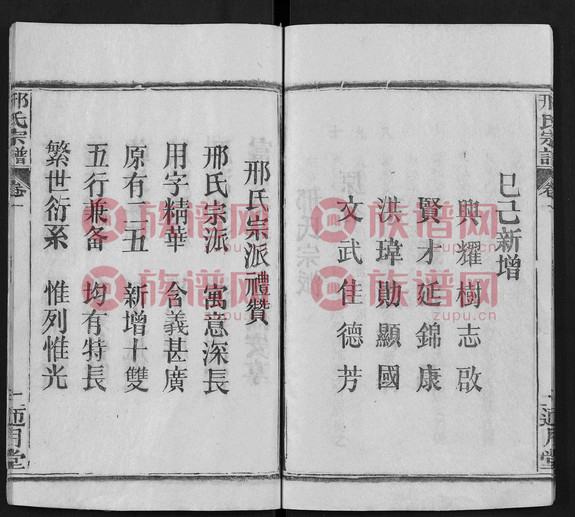 邢氏宗譜
卷一
巳己新增
興耀樹志啟
賢才延錦康
洪瑋勛顯國
文武佳德芳
邢氏宗派禮贊
邢氏宗派 寓意深長
用字精華 含義甚廣
原有二五 新增十雙
五行兼备 均有特長
繁世衍系 惟列惟光
邢氏宗譜
卷一
一
族谱网
zupu.cn